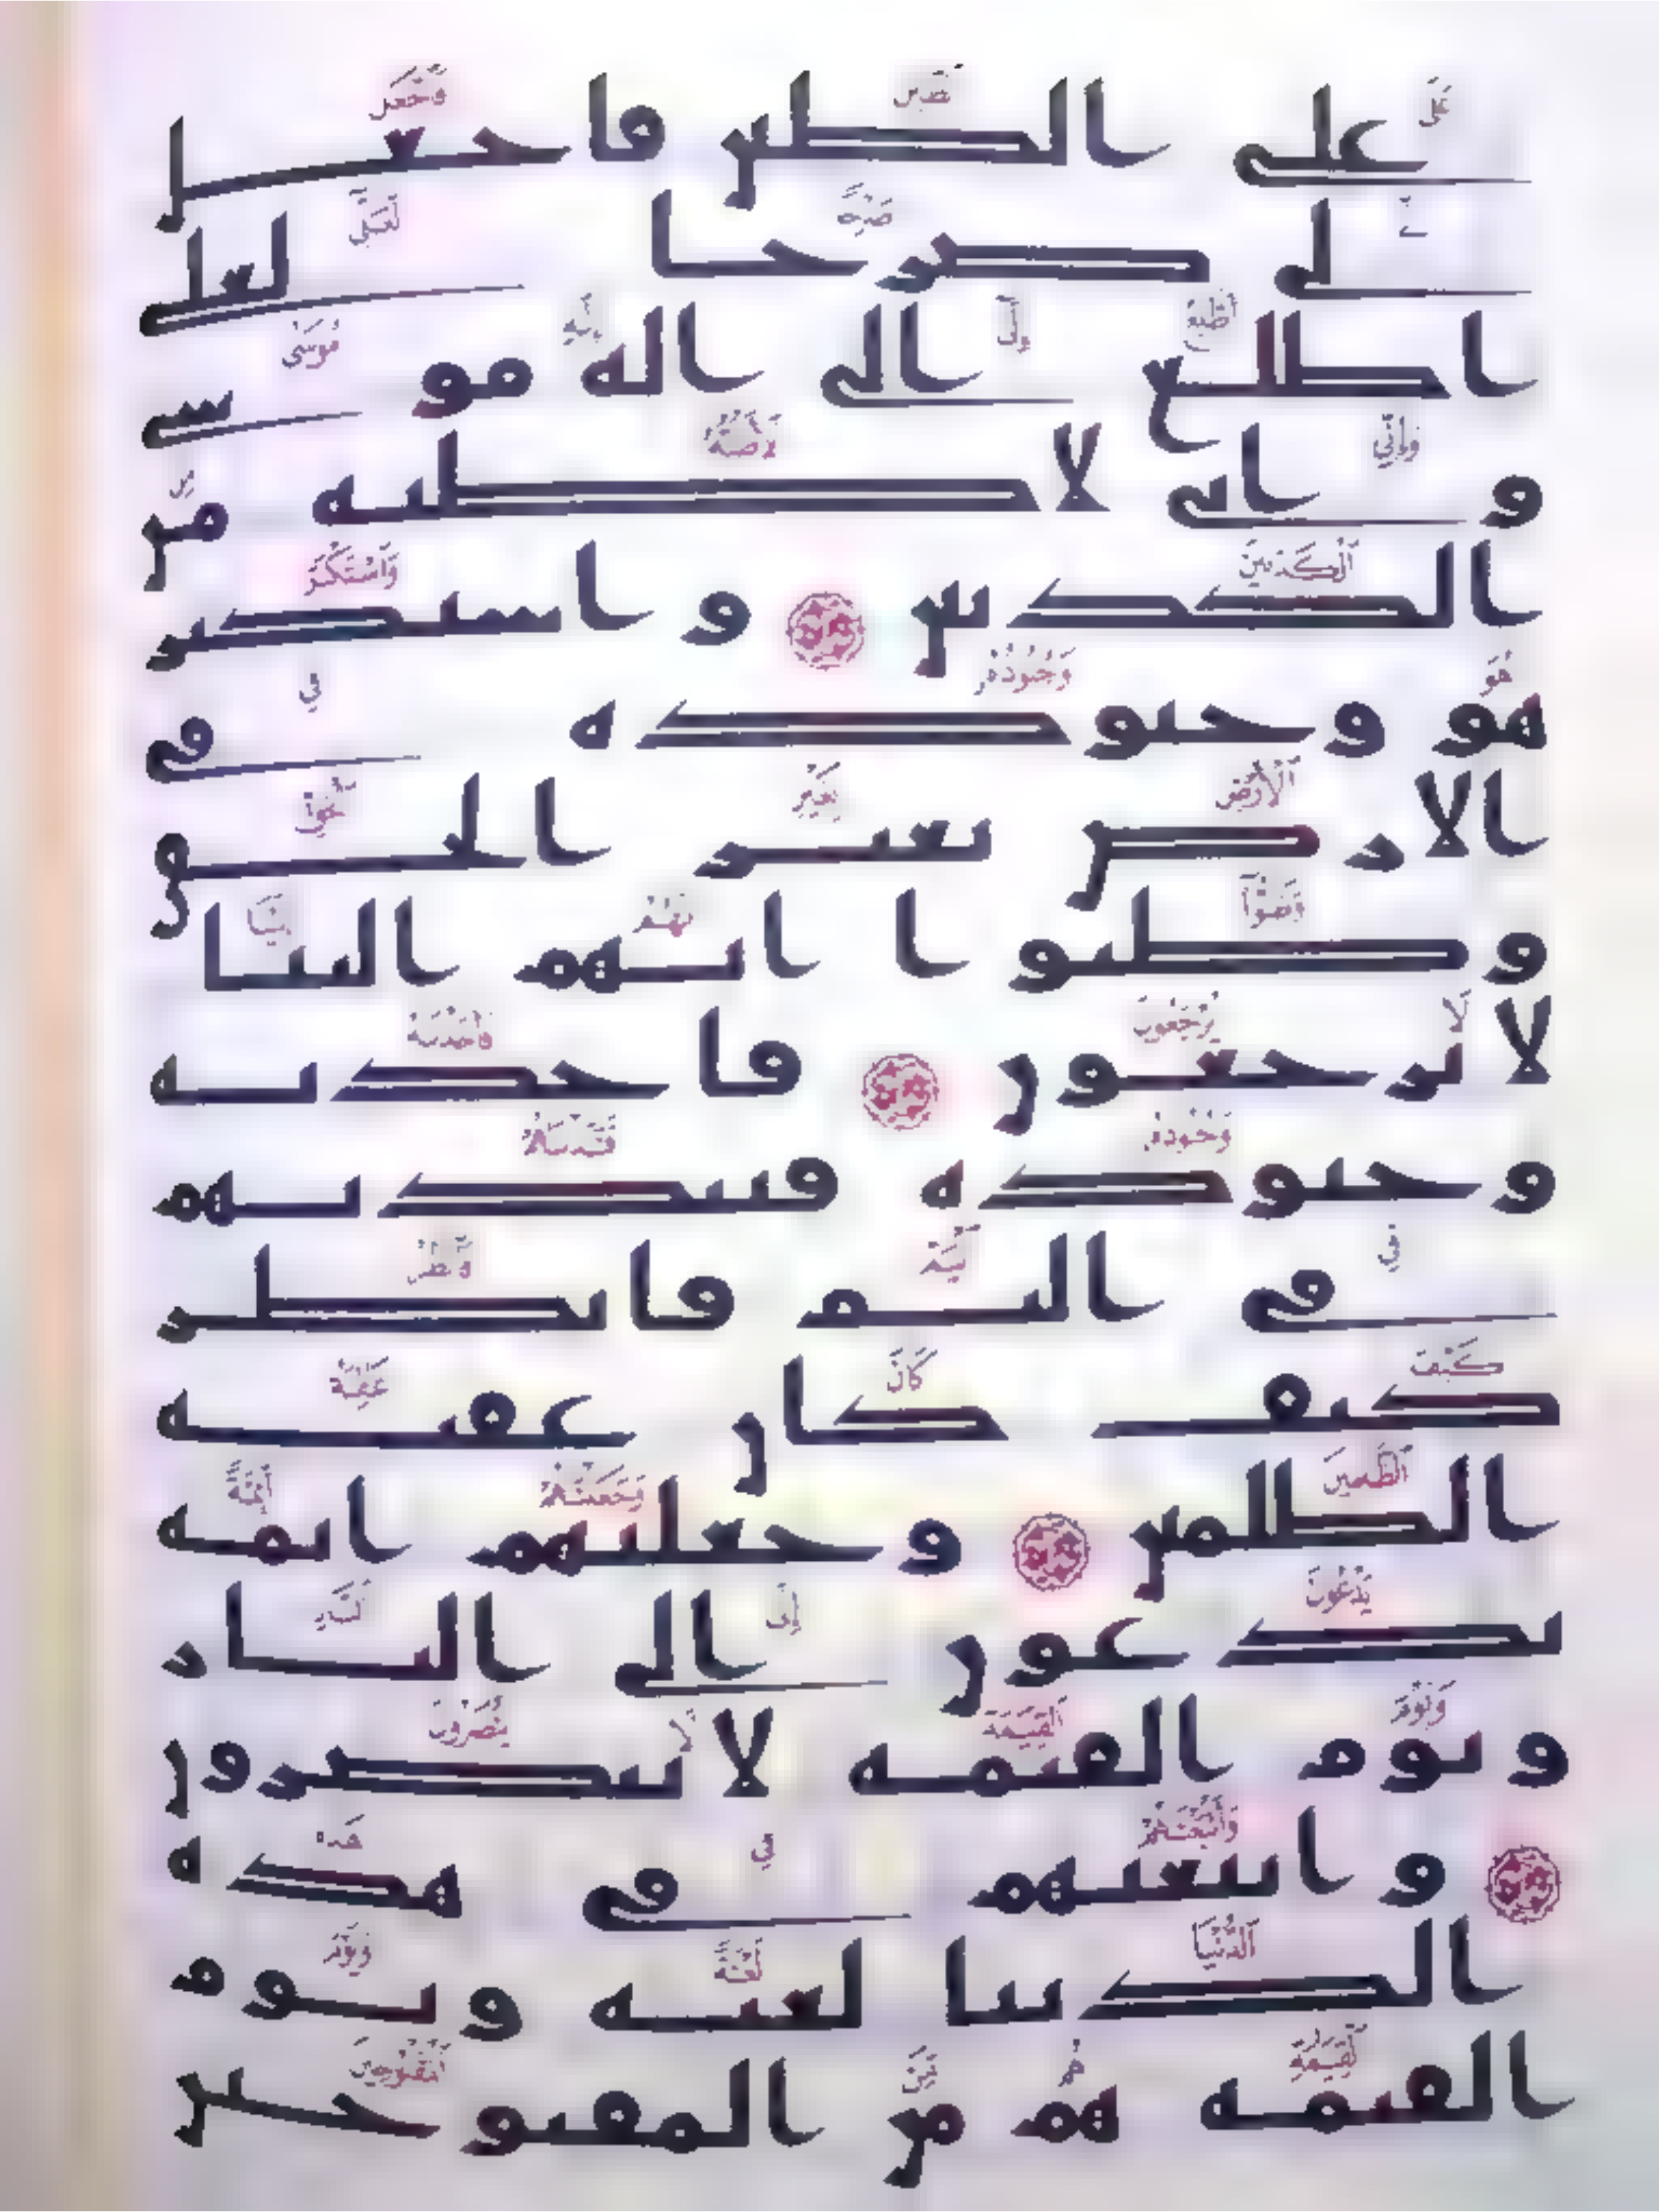 على الطين فاجعل
لي صرحا لعلي
اطلع الى اله موسى
واني لاظنه من
الكذبين واستكبر
هو وجنوده في
الارض بغير الحق
وظنوا انهم الينا
لا يرجعون فاخذنه
وجنوده فنبذنهم
في اليم فانظر
كيف كان عقبة
الظلمين وجعلنهم ائمة
يدعون الى النار
ويوم القيمة لا ينصرون
واتبعنهم في هذه
الدنيا لعنة ويوم
القيمة هم من المقبوحين